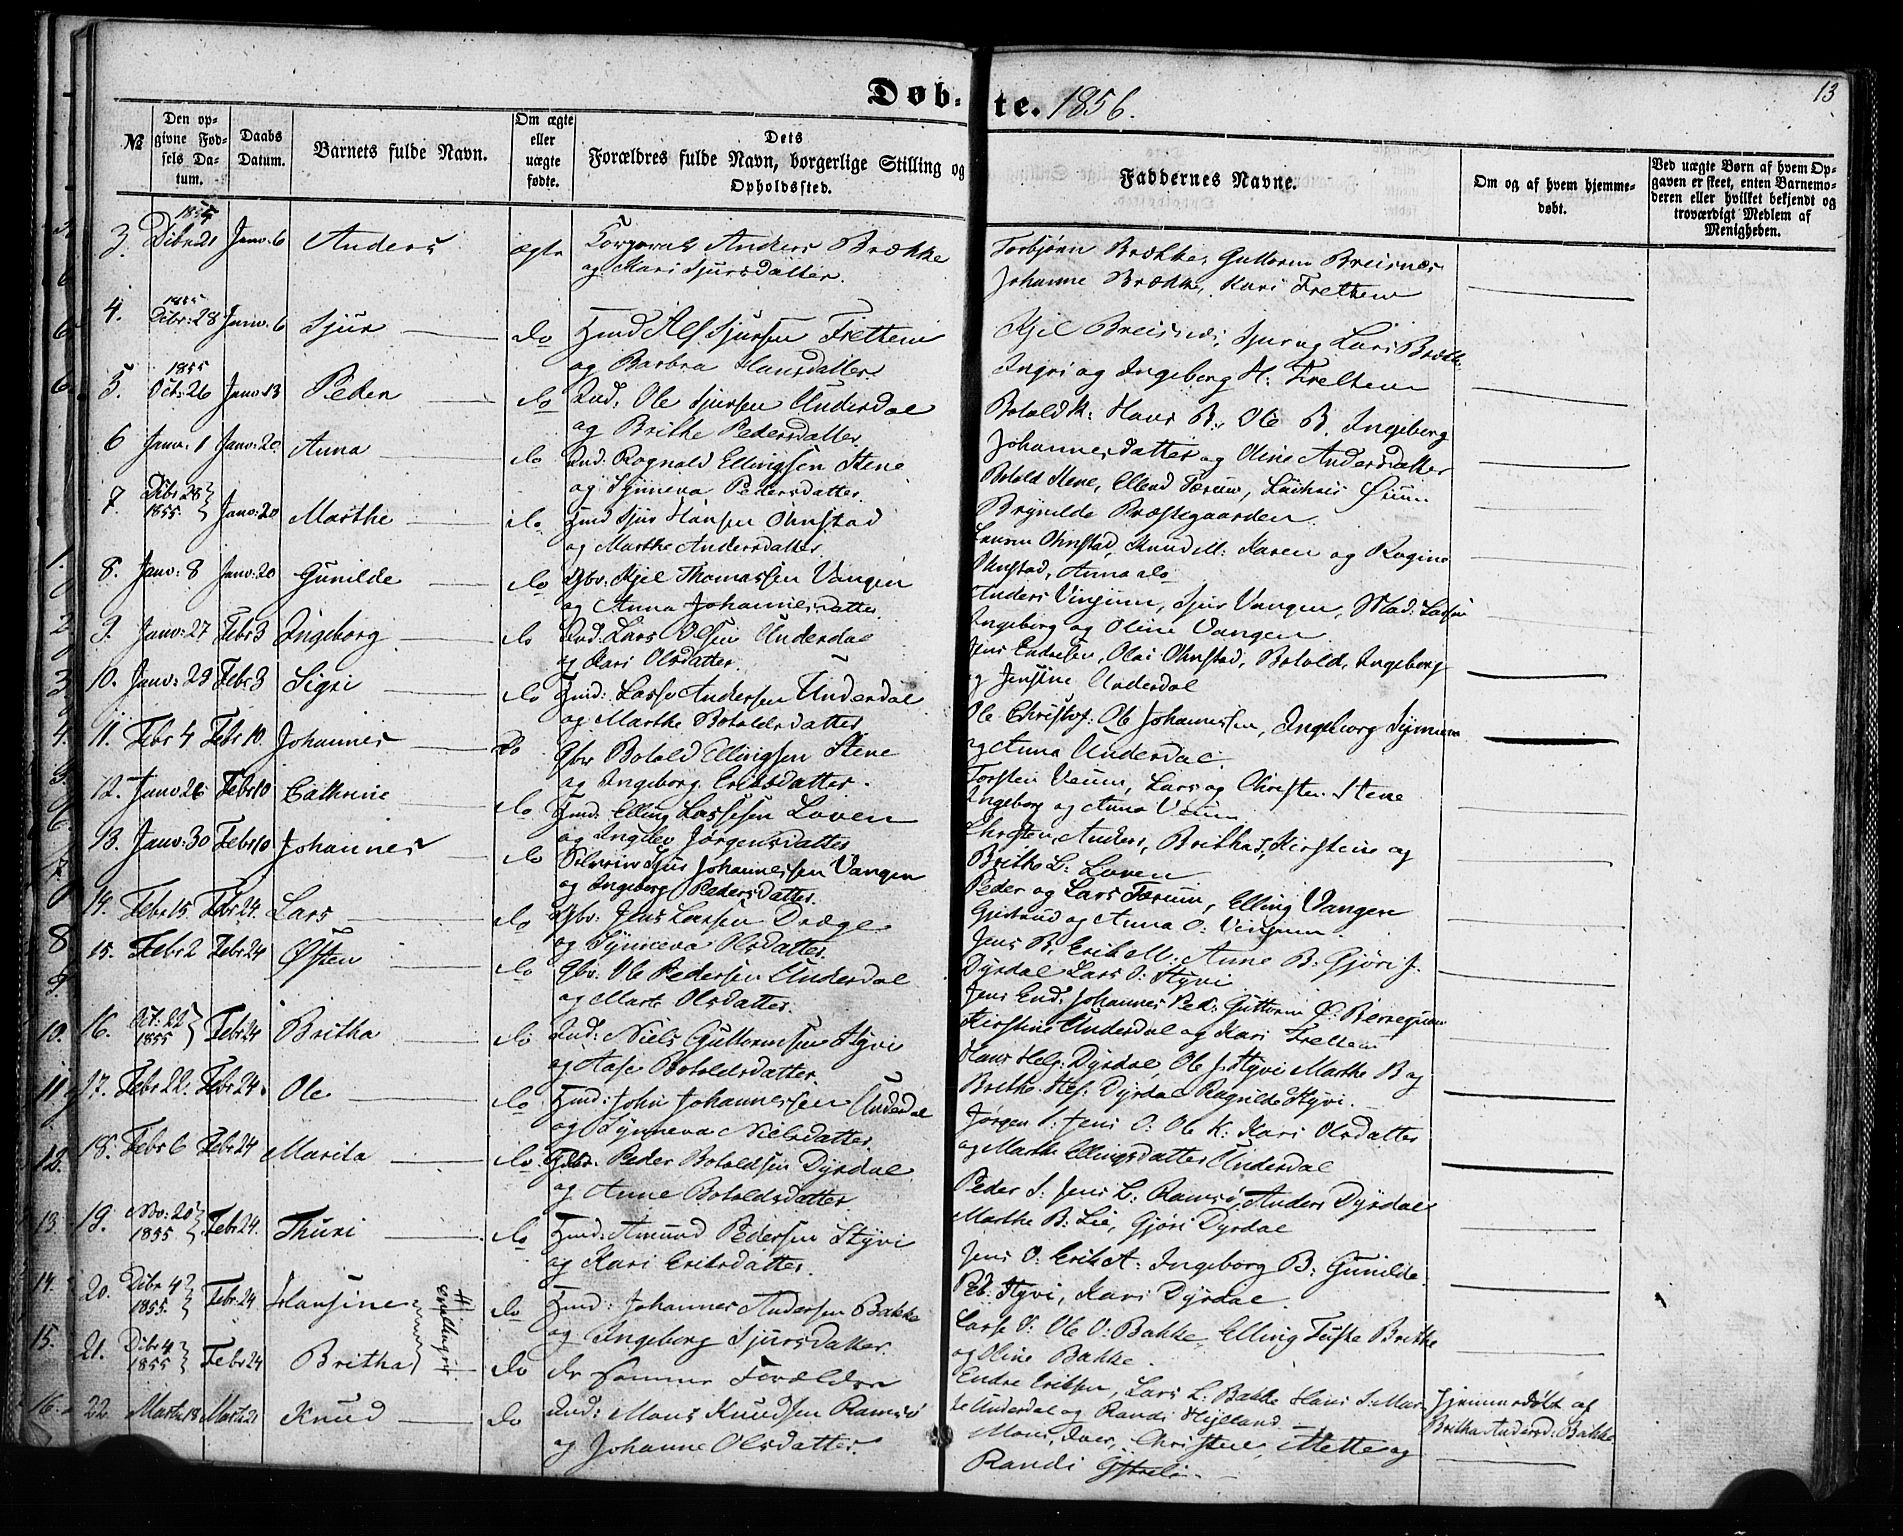 Døb-te. 1856.
13
№
Den opgivne Fødsels Datum.
Daabs Datum.
Barnets fulde Navn.
Om ægte eller uægte fødte.
Dets Forældres fulde Navn, borgerlige Stilling og Opholdssted.
Faddernes Navne.
Om og af hvem hjemmedøbt.
Ved uægte Børn af hvem Opgaven er skeet, enten Barnemoderen eller hvilket bekjendt og troværdigt Medlem af Menigheden.
3. 1855 Dibr 21 Janv: 6 Anders ægte Anders Brække
og Kari Sjursdatter.
Torbjørn Brække, Guttorm Breisnes
Johanne Brække, Kari Fretheim
4. 1855 Dibr: 28 Janv: 6 Sjur do Hmd Alf Sjursen Frettem
og Barbra Hansdatter
Kjel Breisnes, Sjur og Lars Brække
Ingri og Ingeborg H: Frettem
5. 1855 Oct: 26 Janv: 13 Peder do Ind: Ole Sjursen Underdal
og Brithe Pedersdatter
Botold K: Hans B., Ole B. Ingeborg
Johannesdatter og Oline Andersdatter
6 Janv: 1 Janv: 20. Anna do Ind: Rognald Ellingsen Stene
og Synneva Pedersdatter.
Botold Stene, Ellend Tærum,
Brynilde Præstegaarden.
7 Dibr 28 1855. Janv: 20 Marthe do Hmd Sjur Hansen Ohnstad
og Marthe Andersdatter
Ohnstad, Knud M: Karen og Ragine
Ohnstad, Anna do
8. Janv: 8 Janv: 20 Gunilde do Gbr: Kjel Thomassen Vangen
og Anna Johannesdatter
Anders Vinjum, Sjur Vangen, Mad: Lassen
Ingeborg og Oline Vangen
9. Janv: 27 Febr 3 Ingeborg do Ind: Lars Olsen Underdal
og Kari Olsdatter.
Jens Endresen, Olai Ohnstad, Botold, Ingeborg
og Jensine Underdal
10. Janv: 29 Febr 3 Sigri do Hmd: Lasse Andersen Underdal
og Marthe Botoldsdatter
Ole Christof: Ole Johannessen, Ingeborg Synneva
og Anna Underdal.
11. Febr 4 Febr 10. Johannes do Gbr Botold Ellingsen Stene
og Ingeborg Eriksdatter.
Torsten Veum, Lars og Christen Stene
Ingeborg og Anna Veum
12. Janv 26 Febr 10 Cathrine do Hmd: Elling Lassesen Loven
og Ingelev Jørgensdatter
Christen, Anders, Britha, Kirstine og
Britha L: Loven
13. Janv: 30 Febr 10 Johannes do Sjur Johannessen Vangen
og Ingeborg Pedersdatter.
Peder og Lars Tærum, Elling Vangen
Gjertrud og Anna O: Vinjum.
14. Febr 15. Febr 24. Lars do Gbr: Jens Larsen Drægo
og Synneva Olsdatter.
Jens B, Erik M: Anne B: Gjøri J.
Dyrdal Lars O: Styvi
15. Febr 2 Febr 24 Østen do Gbr. Ole Pedersen Underdal
og Olsdatter.
Jens End: Johannes Ped: Guttorm
Kirstine Underdal og Kari Frettem
16. Oct: 22 1855 Febr 24 Britha do Ind: Niels Guttormsen Styvi
og Aase Botoldsdatter.
Hans Hel: Dyrdal, Ole J. Styvi Marthe B og
Brithe Hel: Dyrdal Ragnilde Styvi.
17. Febr 22. Febr 24. Ole do Hmd: John Johannessen Underdal
og Synneva Nielsdatter
Jørgen S. Jens O: Ole K: Kari Olsdatter
og Marthe Ellingsdatter Underdal
18. Febr 6 Febr 24 Marita do Gbr. Peder Botoldsen Dyrdal
og Anne Botoldsdatter.
Peder S: Jens L: Ramsø, Anders Dyrdal
Marthe B: Lie, Gjøri Dyrdal
19. Nov: 20 1855 Febr 24. Thuri do Hmd: Amund Pedersen Styvi
og Kari Eriksdatter.
Jens O. Erik A: Ingeborg B: Gunilde
Ped: Styvi, Kari Dyrdal.
20. Dibr 4 1855. Febr 24 Hansine Tvillinger do Hmd: Johannes Andersen Bakke
og Ingeborg Sjursdatter.
Lasse O: Ole O: Bakke, Elling Brithe
og Oline Bakke.
21. Dibr 4 1855 Febr 24 Britha do de samme Forældre
Endre Eriksen, Lars L. Bakke Hans S:
Underdal og Randi Hylland
22. Marts 18 Marts 21 Knud do Ind: Mons Knudsen Ramsø
og Johanne Olsdatter.
Mons, Iver, Christen, Mette og
Randi
Hjemmedøbt af
Britha Andersd: Bakke